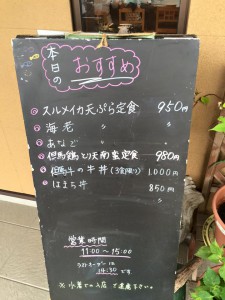 本日の
おすすめ
スルメイカ天ぷら定食 950円
海老 〃 〃
あなご 〃 〃
但馬鶏とり天南蛮定食 980円
但馬牛の牛丼(3食限り) 1,000円
はまち丼 850円
営業時間
11:00〜15:00
ラストオーダーは
14:30です